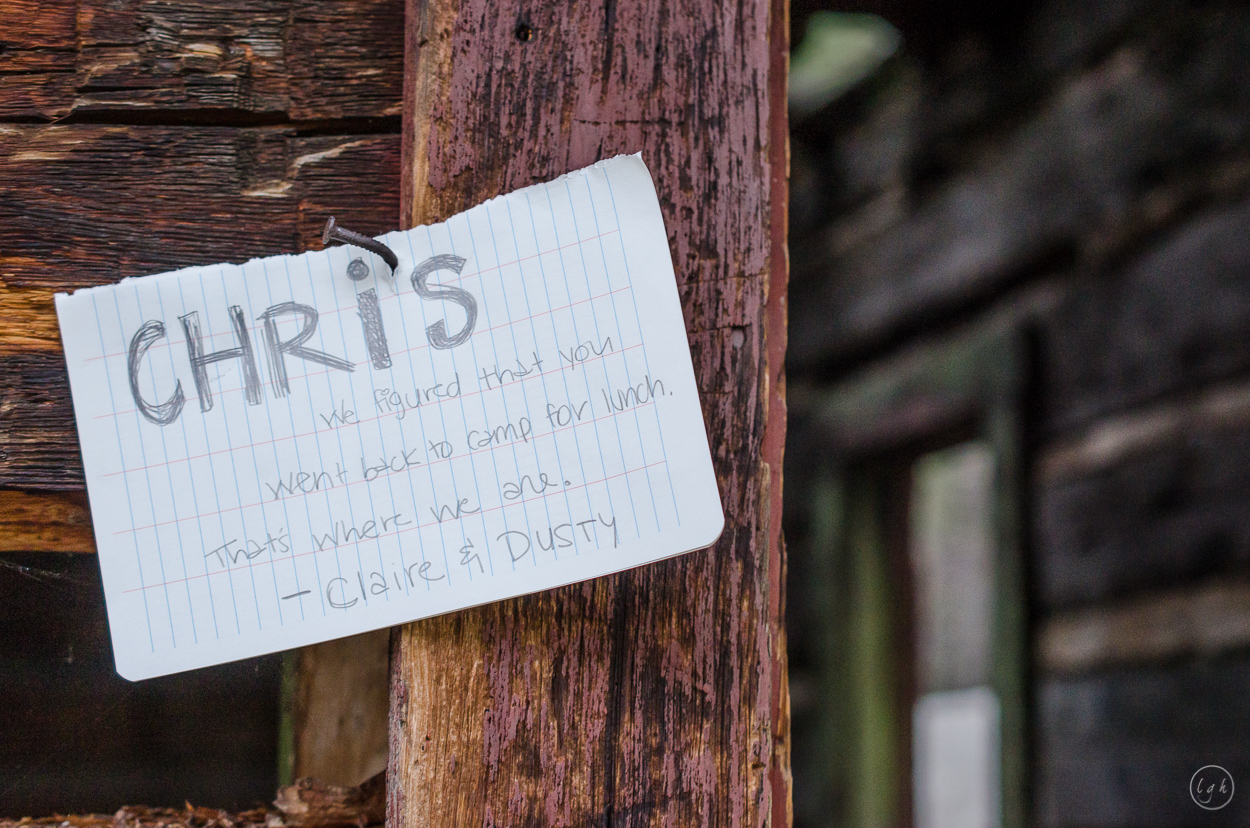 CHRiS
We figured that you
went back to camp for lunch.
That's where we are.
- Claire & DUSTY
lgh